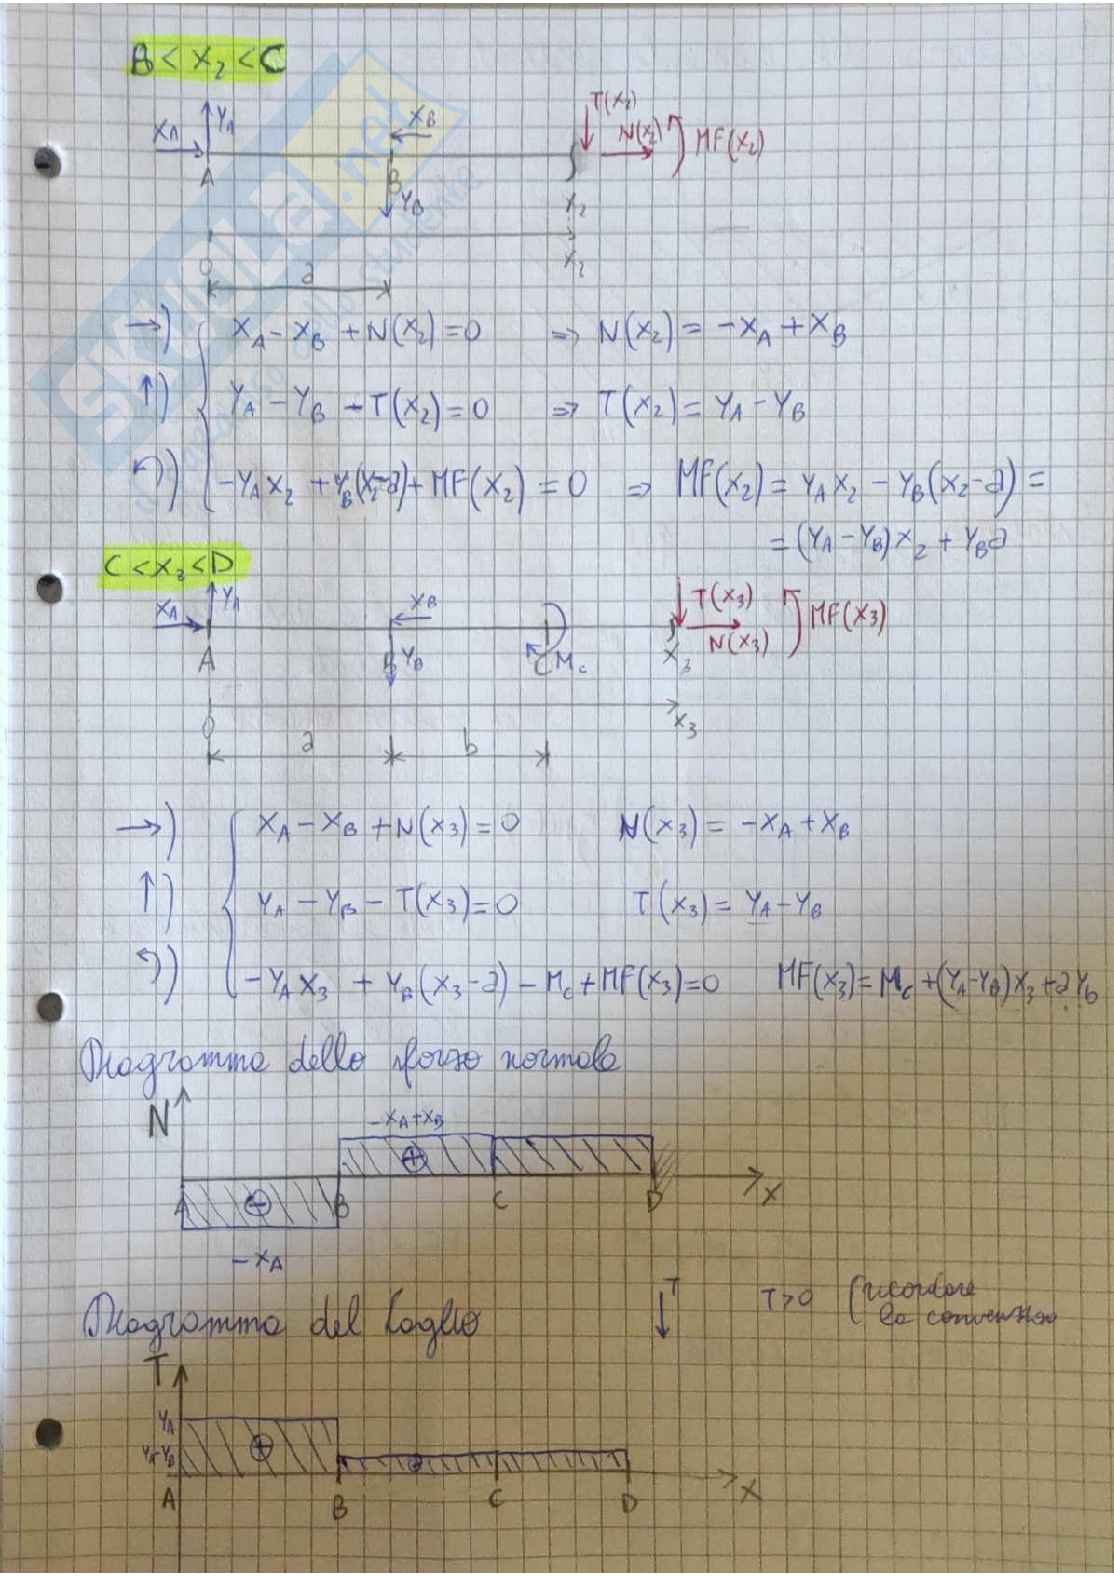 B < x₂ < C
T(x₂)
X_A Y_A X_B N(x₂) MF(x₂)
A B Y_B x₂
O x₂
a
→) X_A - X_B + N(x₂) = 0 => N(x₂) = -X_A + X_B
↑) Y_A - Y_B - T(x₂) = 0 => T(x₂) = Y_A - Y_B
↶) -Y_A x₂ + Y_B(x₂-a) + MF(x₂) = 0 => MF(x₂) = Y_A x₂ - Y_B(x₂-a) =
= (Y_A - Y_B)x₂ + Y_B a
C < x₃ < D
X_A Y_A X_B T(x₃) MF(x₃)
N(x₃)
A B Y_B C M_c x₃
O x₃
a b
→) X_A - X_B + N(x₃) = 0 N(x₃) = -X_A + X_B
↑) Y_A - Y_B - T(x₃) = 0 T(x₃) = Y_A - Y_B
↶) -Y_A x₃ + Y_B(x₃-a) - M_c + MF(x₃) = 0 MF(x₃) = M_c + (Y_A-Y_B)x₃ + aY_B
Diagramma dello sforzo normale
N
-X_A+X_B
+
A - B C D x
-X_A
Diagramma del taglio
T T>0 (ricordare
la convenzione
T
Y_A
+
Y_A-Y_B
A B C D x
SKUOLA.net